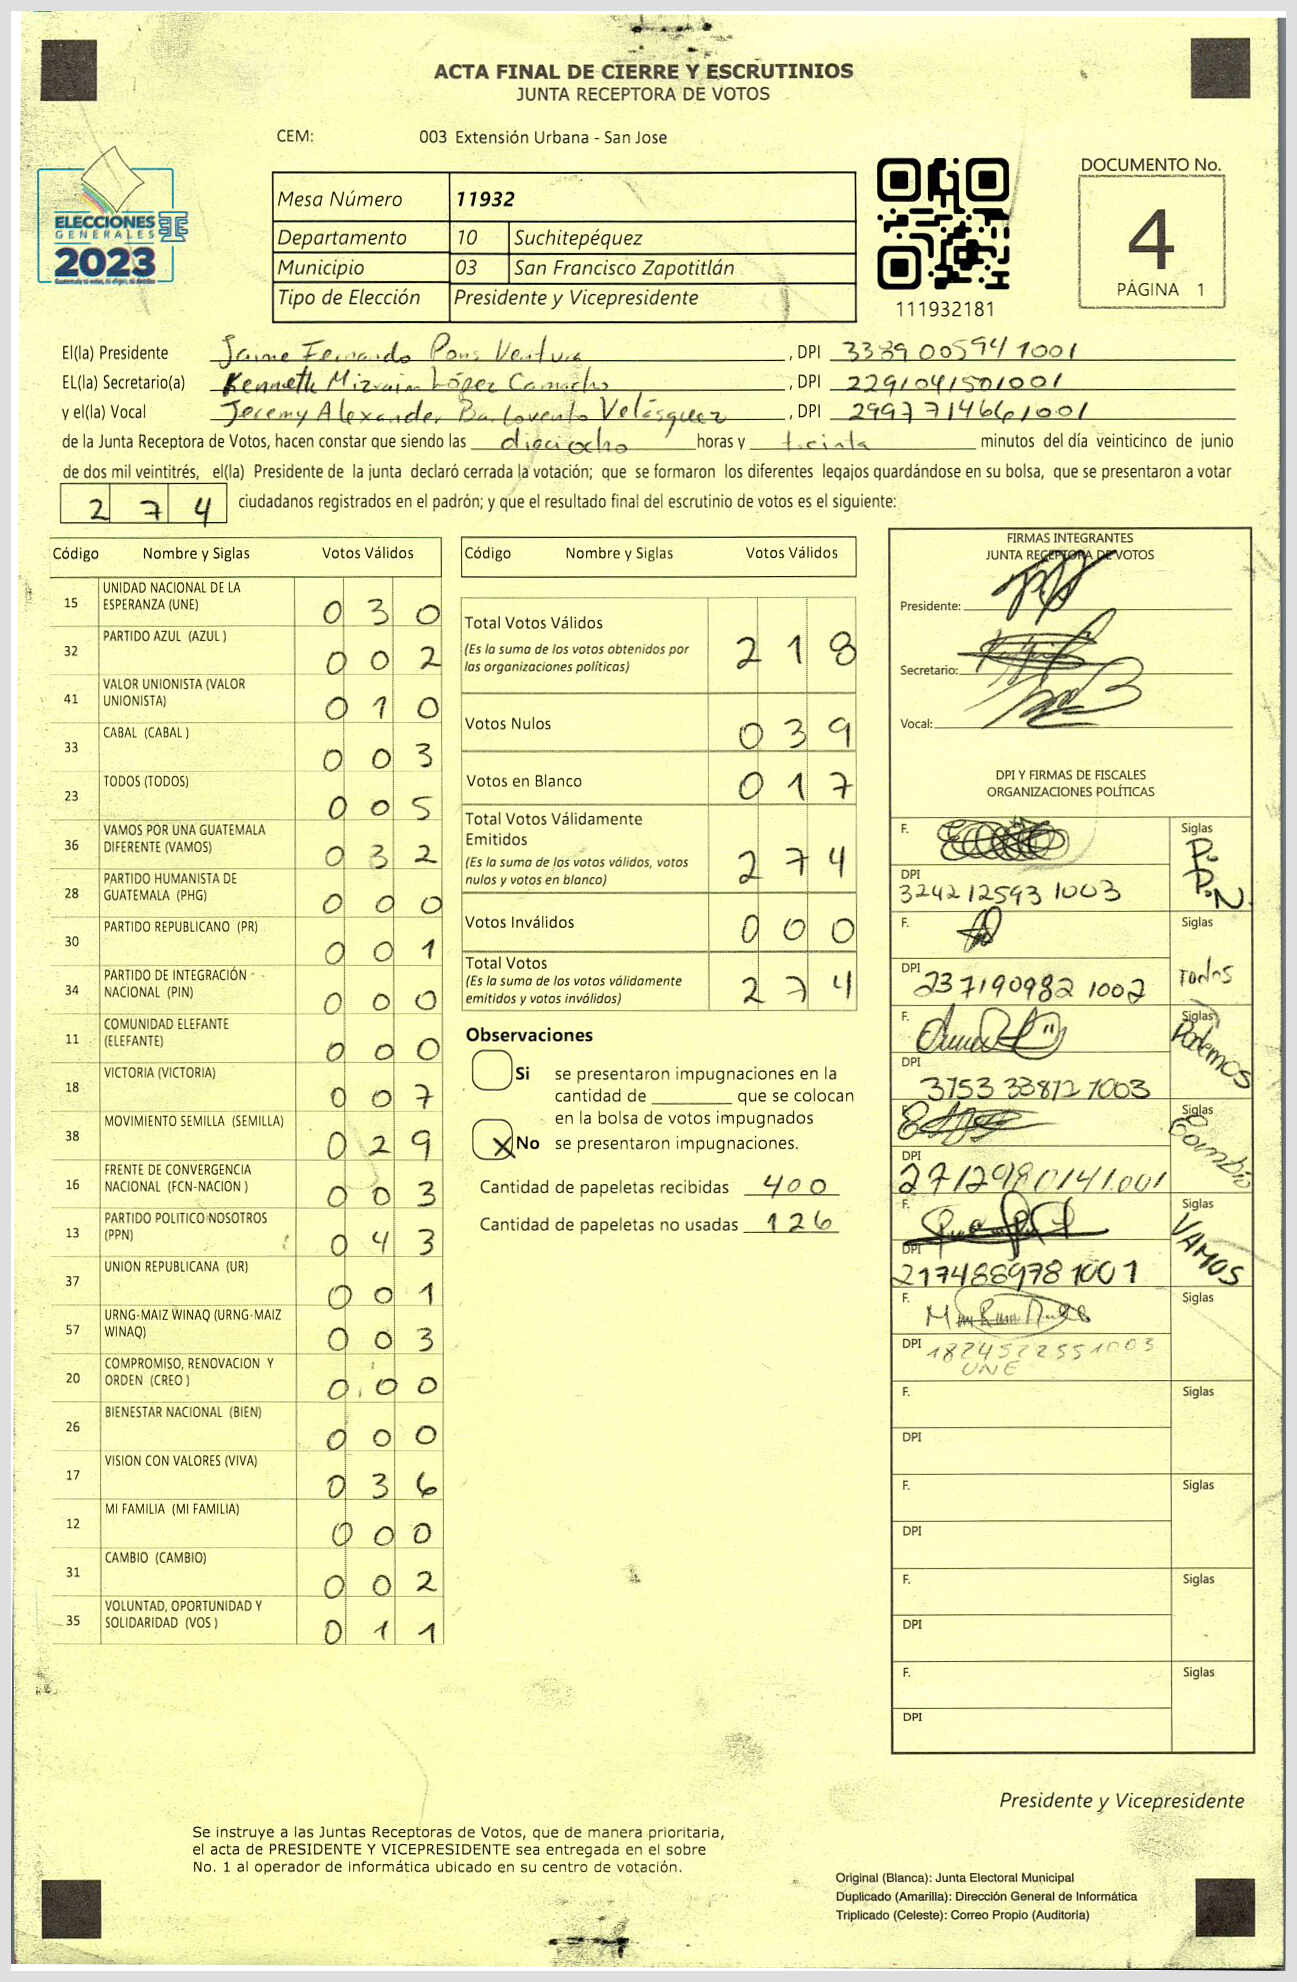 ACTA FINAL DE CIERRE Y ESCRUTINIOS
JUNTA RECEPTORA DE VOTOS
CEM: 003 Extensión Urbana - San Jose
ELECCIONES
GENERALES
2023
Mesa Número 11932
Departamento 10 Suchitepéquez
Municipio 03 San Francisco Zapotitlán
Tipo de Elección Presidente y Vicepresidente
111932181
DOCUMENTO No.
4
PÁGINA 1
El(la) Presidente Jaime Fernando Pons Ventura, DPI 3389005941001
EL(la) Secretario(a) Kenneth Mizraim López Camacho, DPI 2291041501001
y el(la) Vocal Jeremy Alexander Barlovento Velásquez, DPI 2997714661001
de la Junta Receptora de Votos, hacen constar que siendo las dieciocho horas y treinta minutos del día veinticinco de junio
de dos mil veintitrés, el(la) Presidente de la junta declaró cerrada la votación; que se formaron los diferentes legajos guardándose en su bolsa, que se presentaron a votar
2 7 4 ciudadanos registrados en el padrón; y que el resultado final del escrutinio de votos es el siguiente:
Código Nombre y Siglas Votos Válidos
15 UNIDAD NACIONAL DE LA ESPERANZA (UNE) 0 3 0
32 PARTIDO AZUL (AZUL ) 0 0 2
41 VALOR UNIONISTA (VALOR UNIONISTA) 0 1 0
33 CABAL (CABAL ) 0 0 3
23 TODOS (TODOS) 0 0 5
36 VAMOS POR UNA GUATEMALA DIFERENTE (VAMOS) 0 3 2
28 PARTIDO HUMANISTA DE GUATEMALA (PHG) 0 0 0
30 PARTIDO REPUBLICANO (PR) 0 0 1
34 PARTIDO DE INTEGRACIÓN NACIONAL (PIN) 0 0 0
11 COMUNIDAD ELEFANTE (ELEFANTE) 0 0 0
18 VICTORIA (VICTORIA) 0 0 7
38 MOVIMIENTO SEMILLA (SEMILLA) 0 2 9
16 FRENTE DE CONVERGENCIA NACIONAL (FCN-NACION ) 0 0 3
13 PARTIDO POLITICO NOSOTROS (PPN) 0 4 3
37 UNION REPUBLICANA (UR) 0 0 1
57 URNG-MAIZ WINAQ (URNG-MAIZ WINAQ) 0 0 3
20 COMPROMISO, RENOVACION Y ORDEN (CREO ) 0 0 0
26 BIENESTAR NACIONAL (BIEN) 0 0 0
17 VISION CON VALORES (VIVA) 0 3 6
12 MI FAMILIA (MI FAMILIA) 0 0 0
31 CAMBIO (CAMBIO) 0 0 2
35 VOLUNTAD, OPORTUNIDAD Y SOLIDARIDAD (VOS ) 0 1 1
Código Nombre y Siglas Votos Válidos
Total Votos Válidos 2 1 8
(Es la suma de los votos obtenidos por
las organizaciones políticas)
Votos Nulos 0 3 9
Votos en Blanco 0 1 7
Total Votos Válidamente
Emitidos 2 7 4
(Es la suma de los votos válidos, votos
nulos y votos en blanco)
Votos Inválidos 0 0 0
Total Votos 2 7 4
(Es la suma de los votos válidamente
emitidos y votos inválidos)
Observaciones
Si se presentaron impugnaciones en la
cantidad de ________ que se colocan
en la bolsa de votos impugnados
X No se presentaron impugnaciones.
Cantidad de papeletas recibidas 400
Cantidad de papeletas no usadas 126
FIRMAS INTEGRANTES
JUNTA RECEPTORA DE VOTOS
Presidente:
Secretario:
Vocal:
DPI Y FIRMAS DE FISCALES
ORGANIZACIONES POLÍTICAS
F. Siglas P.P.N.
DPI 3242125931003
F. Siglas Todos
DPI 2371909821002
F. Siglas Podemos
DPI 3753338121003
F. Siglas Cambio
DPI 2712980141001
F. Siglas VAMOS
DPI 2174889781001
F. Siglas
DPI 1824522551003
UNE
F. Siglas
DPI
F. Siglas
DPI
F. Siglas
DPI
F. Siglas
DPI
Presidente y Vicepresidente
Se instruye a las Juntas Receptoras de Votos, que de manera prioritaria,
el acta de PRESIDENTE Y VICEPRESIDENTE sea entregada en el sobre
No. 1 al operador de informática ubicado en su centro de votación.
Original (Blanca): Junta Electoral Municipal
Duplicado (Amarilla): Dirección General de Informática
Triplicado (Celeste): Correo Propio (Auditoría)